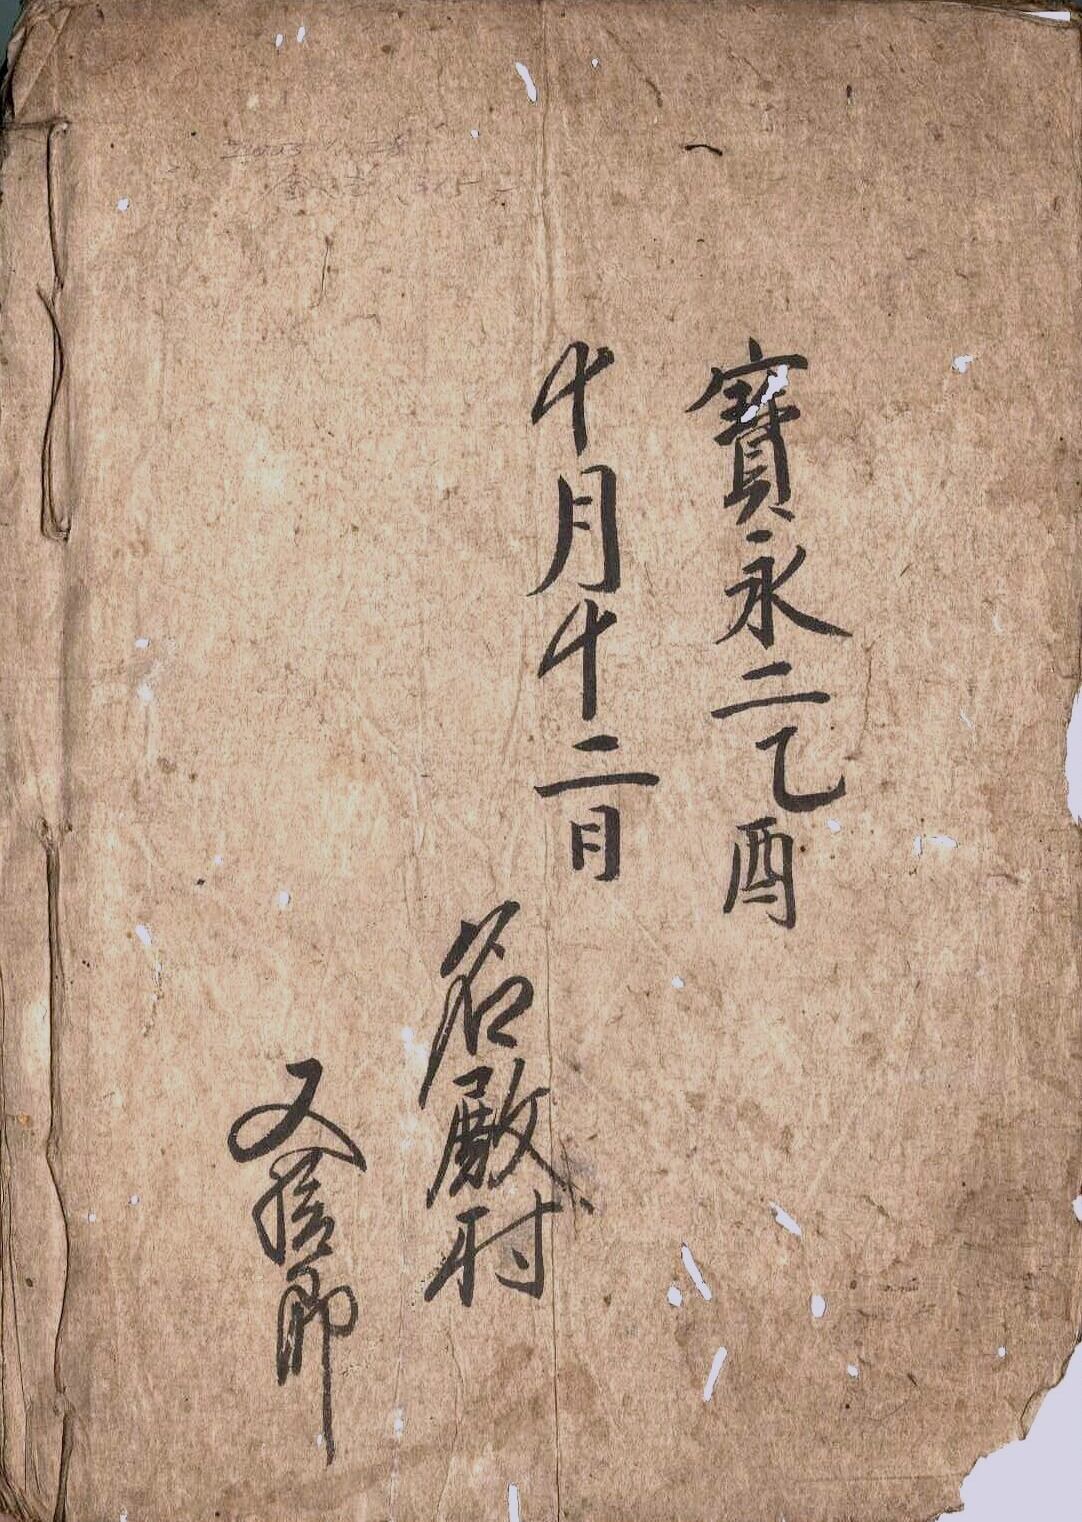 寶永二乙酉
十月十二日
名殿村
又
郎